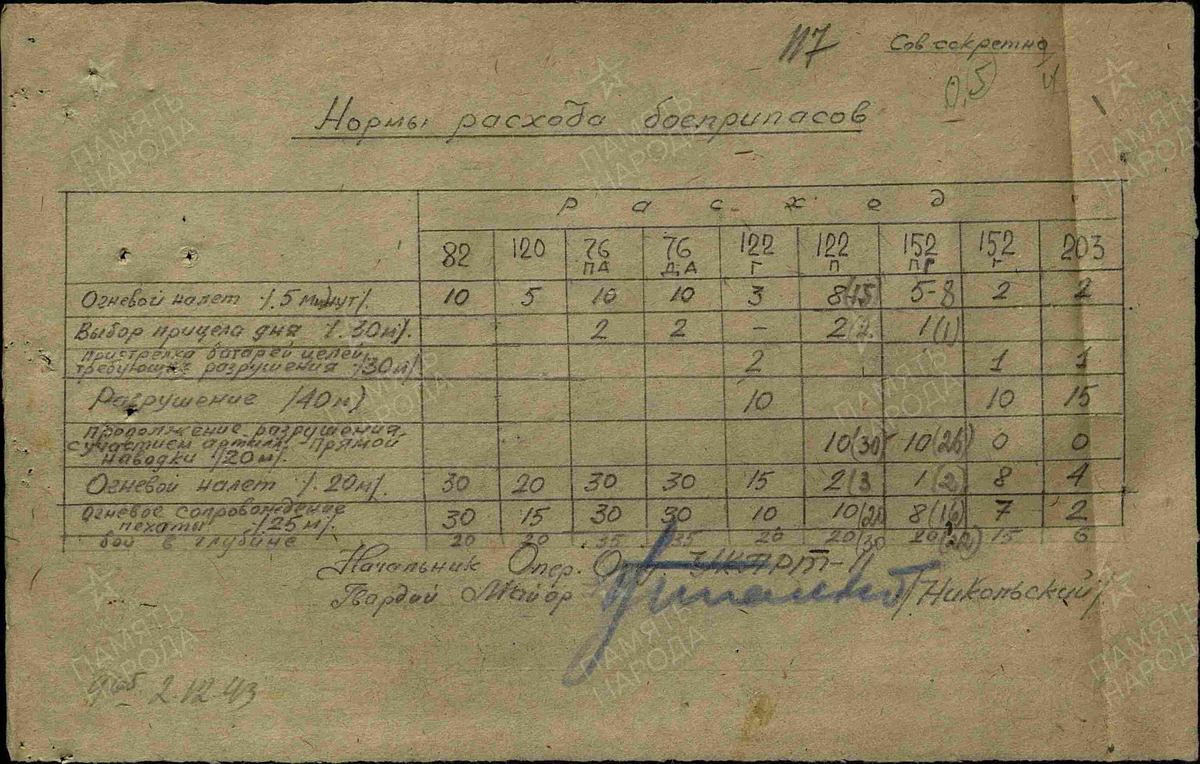 117
Сов секретно
0,5
Нормы расхода боеприпасов
Расход
82 120 76 ПА 76 Д.А 122 Г 122 П 152 152 г 203
Огневой налет /.5 минут/. 10 5 10 10 3 8(15 5-8 2 2
Выбор прицела дня /.30м/. 2 2 – 2(2 1(1)
пристрелка батарей целей
требующих разрушения /30м/ 2 1 1
Разрушение /40м) 10 10 15
продолжение разрушения
с участием артил. - прямой
наводки /20м/. 10(30) 10(26) 0 0
Огневой налет /.20м/. 30 20 30 30 15 2(3 1(2) 8 4
Огневое сопровождение
пехоты /25м/. 30 15 30 30 10 10(20 8(16) 7 2
бой в глубине 20 20 35 35 20 20(30 20 15 6
Начальник Опер.
Гвардии Майор /Никольский/
2.12.43
ПАМЯТЬ НАРОДА